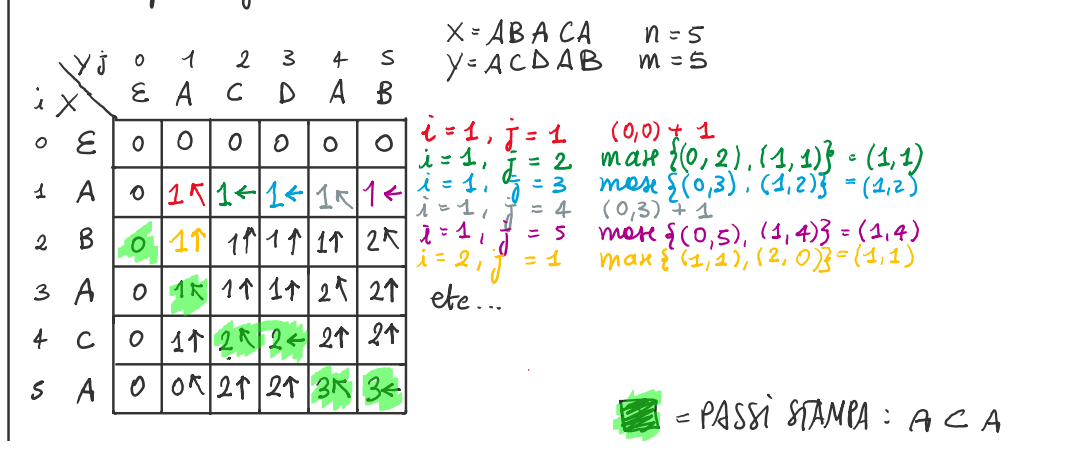 X = ABACA n = 5
Y = ACDAB m = 5
Y j 0 1 2 3 4 5
i X Ɛ A C D A B
0 Ɛ 0 0 0 0 0 0
1 A 0 1↖ 1← 1← 1↖ 1←
2 B 0 1↑ 1↑ 1↑ 1↑ 2↖
3 A 0 1↖ 1↑ 1↑ 2↖ 2↑
4 C 0 1↑ 2↖ 2← 2↑ 2↑
5 A 0 0↖ 2↑ 2↑ 3↖ 3←
i = 1, j = 1 (0,0) + 1
i = 1, j = 2 max {(0,2), (1,1)} = (1,1)
i = 1, j = 3 max {(0,3), (1,2)} = (1,2)
i = 1, j = 4 (0,3) + 1
i = 1, j = 5 max {(0,5), (1,4)} = (1,4)
i = 2, j = 1 max {(1,1), (2,0)} = (1,1)
etc...
= PASSI STAMPA : A C A